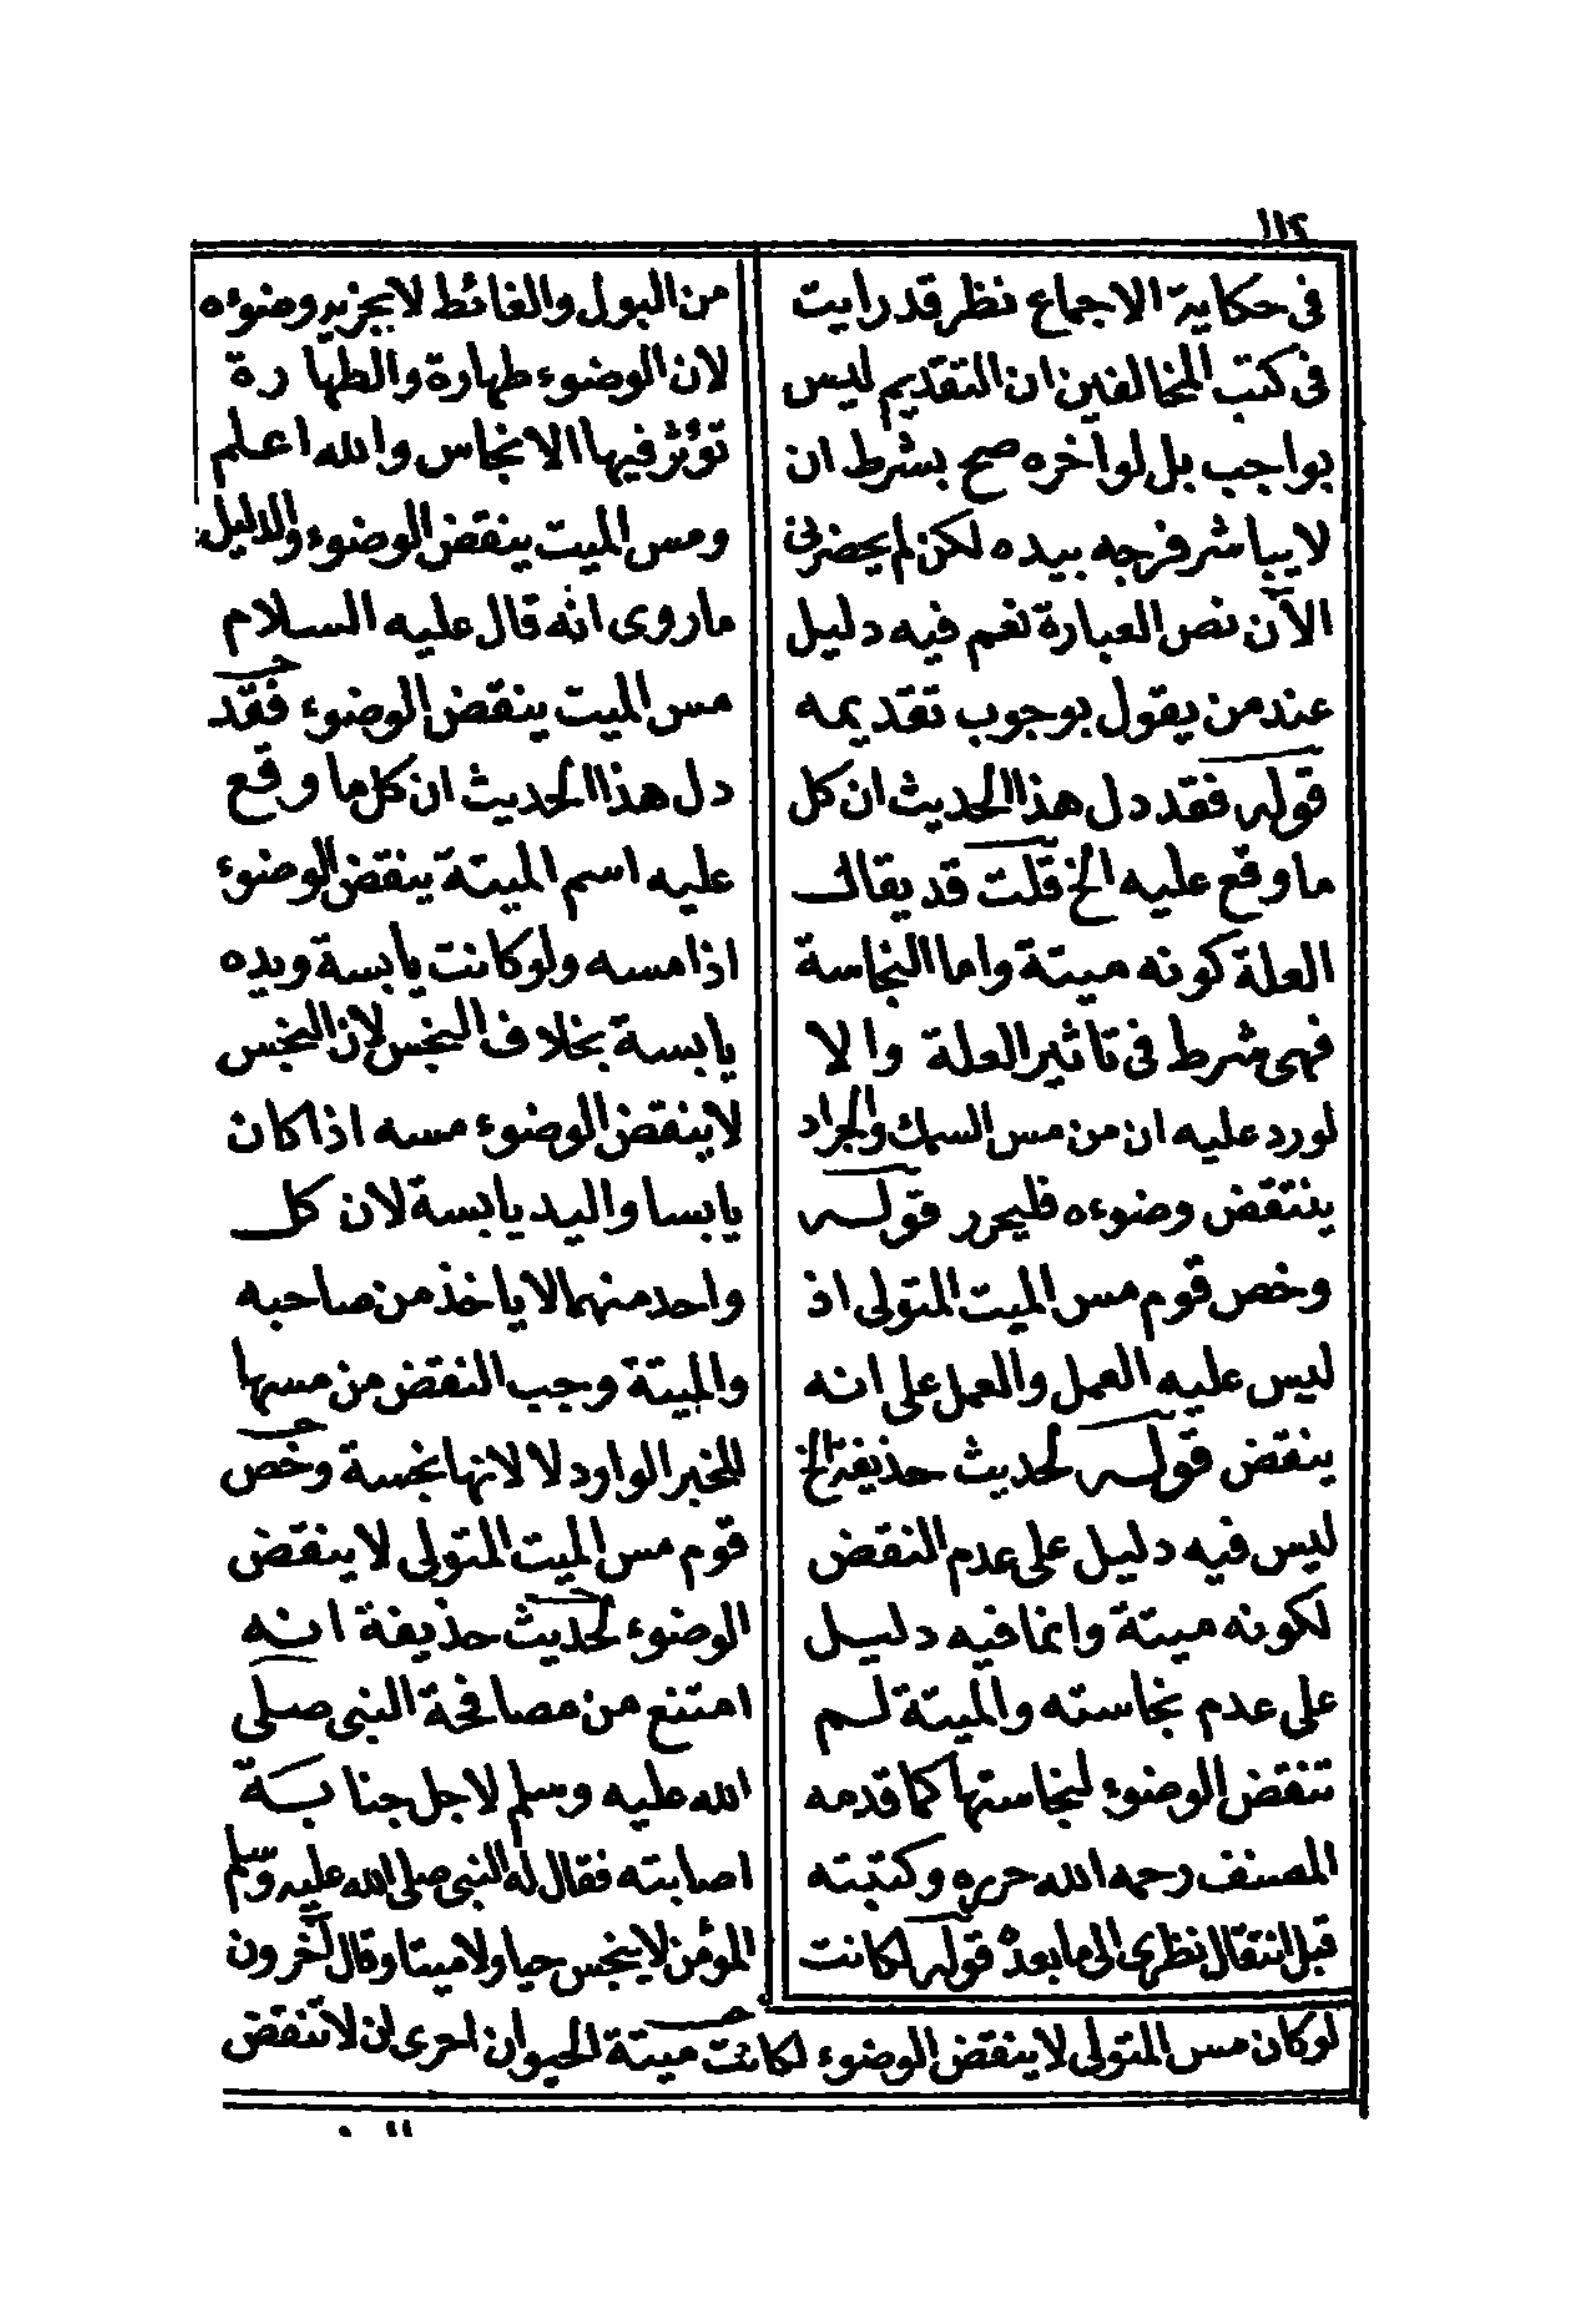 ١١٢
فى حكاية الاجماع نظر قد رايت
فى كتب المخالفين ان التقديم ليس
بواجب بل لو اخره صح بشرط ان
لا يباشر فرجه بيده لكن لم يحضرنى
الآن نص العبارة نعم فيه دليل
عند من يقول بوجوب تقديمه
قوله فقد دل هذا الحديث ان كل
ما وقع عليه الخ قلت قد يقال
العلة كونه ميتة واما النجاسة
فهى شرط فى تاثير العلة والا
لورد عليه ان من مس السمك والجراد
ينتقض وضوءه فليحرر قوله
وخص قوم مس الميت المتولى اذ
ليس عليه العمل والعمل على انه
ينقض قوله لحديث حذيفة الخ
ليس فيه دليل على عدم النقض
لكونه ميتة وانما فيه دليل
على عدم نجاسته والميتة لم
تنقض الوضوء لنجاستها كما قدمه
المصنف رحمه الله حرره وكتبته
قبل انتقال نظرى الى ما بعده قوله لكانت
من البول والغائط لا يجزيه وضوءه
لان الوضوء طهارة والطها رة
تؤثر فيها الانجاس والله اعلم
ومس الميت ينقض الوضوء والدليل
ما روى انه قال عليه السلام
مس الميت ينقض الوضوء فقد
دل هذا الحديث ان كل ما وقع
عليه اسم الميتة ينقض الوضوء
اذا مسه ولو كانت يابسة ويده
يابسة بخلاف النجس لان النجس
لا ينقض الوضوء مسه اذا كان
يابسا واليد يابسة لان كل
واحد منهما لا ياخذ من صاحبه
والميتة وجب النقض من مسها
للخبر الوارد لا لانها نجسة وخص
قوم مس الميت المتولى لا ينقض
الوضوء لحديث حذيفة انه
امتنع من مصافحة النبى صلى
الله عليه وسلم لاجل جنابة
اصابته فقال له النبى صلى الله عليه وسلم
المؤمن لا ينجس حيا ولا ميتا وقال آخرون
لو كان مس المتولى لا ينقض الوضوء لكانت ميتة الحيوان احرى ان لا تنقض